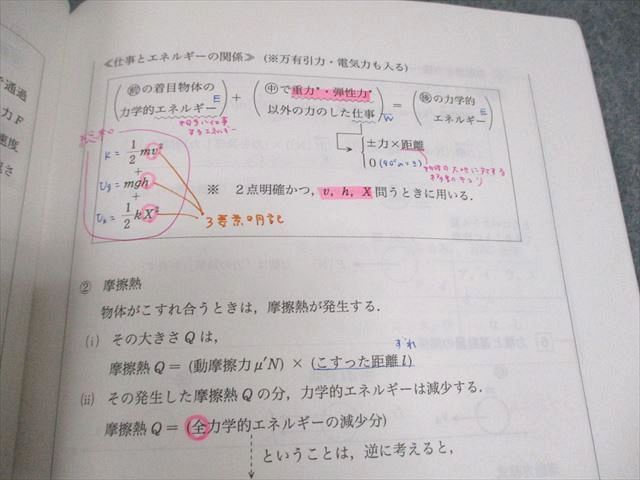 ≪仕事とエネルギーの関係≫ (※万有引力・電気力も入る)
(前の着目物体の力学的エネルギー) + (中で重力*・弾性力*以外の力のした仕事) = (後の力学的エネルギー)
E
W
E
±力×距離
0 (90°のとき)
K = 1/2 mv²
+
Ug = mgh
+
Uk = 1/2 kX²
3要素明記
※ 2点明確かつ, v, h, X 問うときに用いる.
② 摩擦熱
物体がこすれ合うときは, 摩擦熱が発生する.
(i) その大きさ Q は,
ずれ
摩擦熱 Q = (動摩擦力 μ'N) × (こすった距離 l)
(ii) その発生した摩擦熱 Q の分, 力学的エネルギーは減少する.
摩擦熱 Q = (全力学的エネルギーの減少分)
ということは, 逆に考えると,
で通過
力 F
速度
高さ